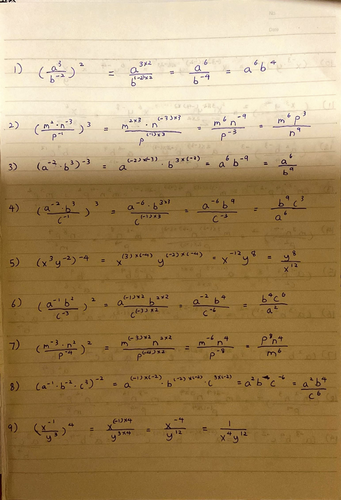 1) (a³/b⁻²)² = a³ˣ²/b⁽⁻²⁾ˣ² = a⁶/b⁻⁴ = a⁶b⁴
2) (m²·n⁻³/p⁻¹)³ = m²ˣ³·n⁽⁻³⁾ˣ³/p⁽⁻¹⁾ˣ³ = m⁶n⁻⁹/p⁻³ = m⁶p³/n⁹
3) (a⁻²·b³)⁻³ = a⁽⁻²⁾ˣ⁽⁻³⁾·b³ˣ⁽⁻³⁾ = a⁶b⁻⁹ = a⁶/b⁹
4) (a⁻²b³/c⁻¹)³ = a⁻⁶·b³ˣ³/c⁽⁻¹⁾ˣ³ = a⁻⁶b⁹/c⁻³ = b⁹c³/a⁶
5) (x³y⁻²)⁻⁴ = x⁽³⁾ˣ⁽⁻⁴⁾y⁽⁻²⁾ˣ⁽⁻⁴⁾ = x⁻¹²y⁸ = y⁸/x¹²
6) (a⁻¹b²/c⁻³)² = a⁽⁻¹⁾ˣ²b²ˣ²/c⁽⁻³⁾ˣ² = a⁻²b⁴/c⁻⁶ = b⁴c⁶/a²
7) (m⁻³·n²/p⁻⁴)² = m⁽⁻³⁾ˣ²n²ˣ²/p⁽⁻⁴⁾ˣ² = m⁻⁶n⁴/p⁻⁸ = p⁸n⁴/m⁶
8) (a⁻¹·b⁻²·c³)⁻² = a⁽⁻¹⁾ˣ⁽⁻²⁾·b⁽⁻²⁾ˣ⁽⁻²⁾·c⁽³ˣ⁻²⁾ = a²b⁴c⁻⁶ = a²b⁴/c⁶
9) (x⁻¹/y³)⁴ = x⁽⁻¹⁾ˣ⁴/y³ˣ⁴ = x⁻⁴/y¹² = 1/x⁴y¹²